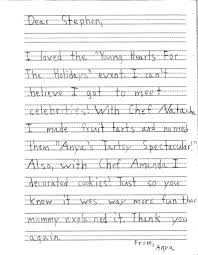 Dear Stephen,
I loved the "Young Hearts For
The Holidays" event. I can't
believe I got to meet
celebrities! With Chef Natasha
I made fruit tarts and named
them "Anya's Tartsy Spectacular"
Also, with Chef Amanda I
decorated cookies! Just so you
know it was way more fun than
mommy explained it. Thank you
again.
From,
Anya